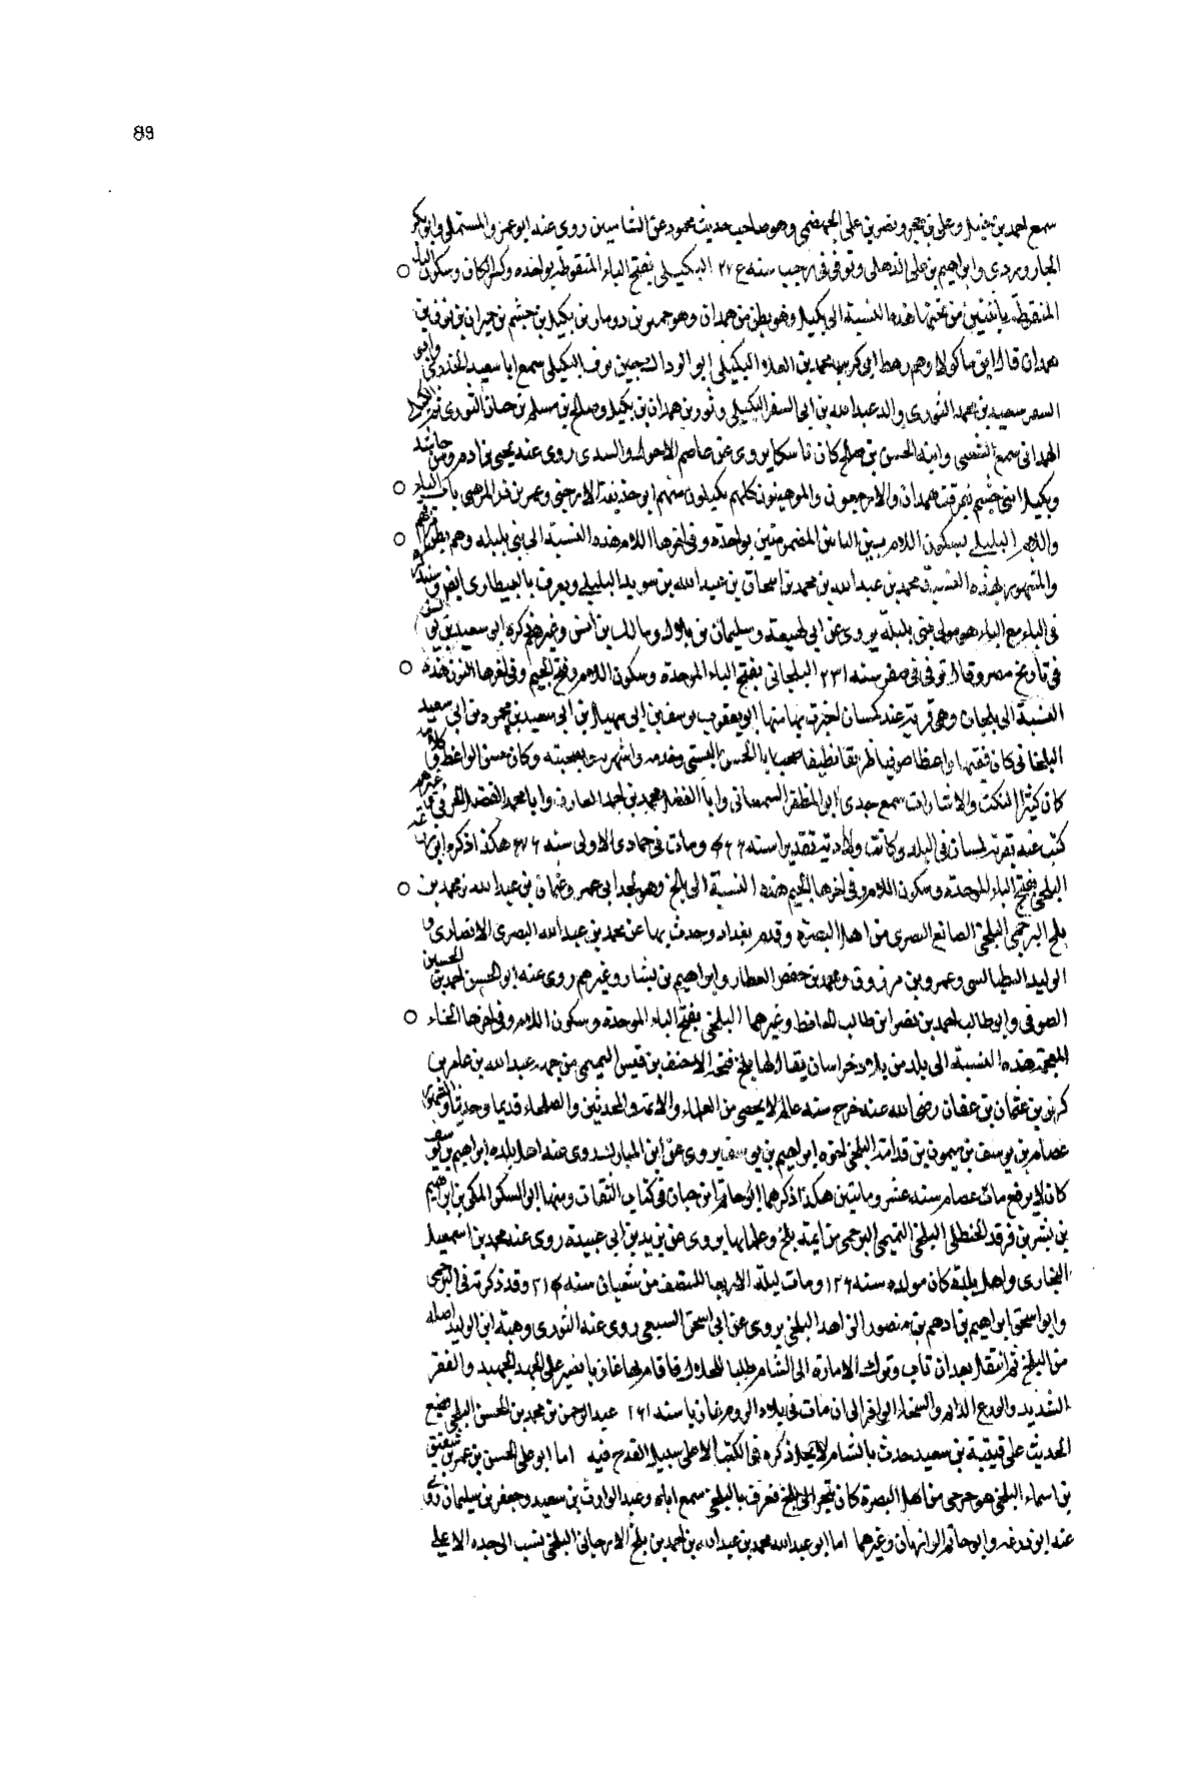 89
سمع احمد بن حنبل وعلى بن حجر ونصر بن على الجهضمى وهو صاحب حديث محمود عن الشاميين روى عنه ابو عمرو المستملى وابو بكر
الجارودى وابراهيم بن على الذهلى وتوفى فى رجب سنه ٢٧٤ البكيلى بفتح الباء المنقوطة بواحده وكسر الكاف وسكون الياء
المنقوطة باثنتين من تحتها هذه النسبة الى بكيل وهو بطن من همدان وهو بن دومان بن بكيل بن جشم بن خيران بن نوف بن
همدان قال ابن ماكولا وهم رهط ابى كريب محمد بن العلاء البكيلى ابو الوداك جبر بن نوف البكيلى سمع ابا سعيد الخدرى وابى
السفر سعيد بن محمد الثورى والد عبد الله بن ابى السفر البكيلى وثور بن همدان بن بكيل وصالح بن مسلم بن حيان الثورى
الهمدانى سمع الشعبى وابنه الحسن بن صالح كان ناسكا يروى عن عاصم الاحول والسدى روى عنه يحيى بن ادم ومن حاشد
وبكيل ابنى جشم تفرقت همدان والارحبيون والموهبيون كلهم بكيلون منهم ابو حذيفة الارحبى وعمر بن ذر المرهبى باب الباء
واللام البلبلى بسكون اللام بين الباءين المضمومتين بواحدة وفى اخرها اللام هذه النسبة الى بنى بلبله وهم بطن من فهم
والمشهور بهذه النسبة محمد بن عبد الله بن محمد بن اسحاق بن عبيد الله بن سويد البلبلى ويعرف بالبيطارى ايضا
فى الباء مع الياء هو مولى بنى بلبلة يروى عن ابى لهيعة وسليمان بن بلال ومالك بن انس وغيرهم ذكره ابو سعيد بن يونس
فى تاريخ مصر وقال توفى فى صفر سنه ٢٣١ البلجانى بفتح الباء الموحدة وسكون اللام وفتح الجيم وفى اخرها النون هذه
النسبة الى بلجان وهى قرية عند كمسان خرج بها منها ابو يعقوب يوسف بن ابى سهيل بن ابى سعيد بن محمود بن ابى سعيد
البلجانى كان فقيها واعظا صوفيا ظريفا نظيفا صحب ابا الحسن البستى وخدمه واشتهر بصحبته وكان حسن الوعظ
كان كثير النكت والاشارات سمع جدى ابو المظفر السمعانى وابا الفضل محمد بن احمد العارف وابا محمد الفضل
كتب عنه بقرية كمسان فى البلد وكانت ولادته تقديرا سنه ومات فى جمادى الاولى سنه هكذا ذكره
البلجى بفتح الباء الموحدة وسكون اللام وفى اخرها الجيم هذه النسبة الى بلج وهو لجد ابى عمرو عثمان بن عبد الله بن محمد بن
بلج البرجمى البلجى الصانع البصرى من اهل البصرة وقدم بغداد وحدث بها عن محمد بن عبد الله البصرى الانصارى و
الوليد الطيالسى وعمرو بن مرزوق ومحمد بن حفص العطار وابراهيم بن بشار وغيرهم روى عنه ابو الحسن احمد بن الحسين
الصوفى وابو طالب احمد بن نصر ابن طالب الحافظ وغيرهما البلخى بفتح الباء الموحدة وسكون اللام وفى اخرها الخاء
المعجمة هذه النسبة الى بلد من بلاد خراسان يقال لها بلخ فتحها الاحنف بن قيس التميمى من جهة عبد الله بن عامر بن
كريز بن عثمان بن عفان رضى الله عنه خرج منه عالم لا يحصى من العلماء والائمة والمحدثين والصلحاء قديما وحديثا
عصام بن يوسف بن ميمون بن قدامة البلخى اخوه ابراهيم بن يوسف يروى عن ابن المبارك روى عنه اهل بلده ابراهيم بن يوسف
كان لا يرفع مات عصام سنه عشر ومايتين هكذا ذكرهما ابو حاتم ابن حبان فى كتاب الثقات ومنها ابو السكن المكى بن ابراهيم
بن بشير بن فرقد الحنظلى البلخى التميمى البرجمى من ايمة بلخ وعلمايها يروى عن يزيد بن ابى عبيدة روى عنه محمد بن اسمعيل
البخارى واهل بلده كان مولده سنه ١٢٦ ومات ليلة الاربعا للنصف من شعبان سنه ٢١٤ وقد ذكرته فى البرجمى
وابو اسحق ابراهيم بن ادهم بن منصور الزاهد البلخى يروى عن ابى اسحق السبيعى روى عنه الثورى وهبة ابن الوليد اصله
من البلخ ثم انتقل بعد ان تاب وترك الامارة الى الشام طلبا للحلال فاقام بها غازيا يصبر على الجهد الجهيد والفقر
الشديد والورع الدائم والسخاء الوافر الى ان مات فى بلاد الروم غازيا سنه ١٦١ عبد الرحمن بن محمد بن الحسن البلخى يضع
الحديث على قتيبة بن سعيد حدث بالشام لا يحل ذكره فى الكتب الا على سبيل القدح فيه اما ابو على الحسن بن عمر بن شقيق
بن اسماء البلخى هو جرمى من اهل البصرة كان يتجر الى بلخ فعرف بالبلخى سمع اباه وعبد الوارث بن سعيد وجعفر بن سليمان روى
عنه ابو زرعه وابو حاتم الرازيان وغيرهما اما ابو عبد الله محمد بن عبد الله بن احمد بن بلخ الارجانى البلخى نسب الى جده الاعلى